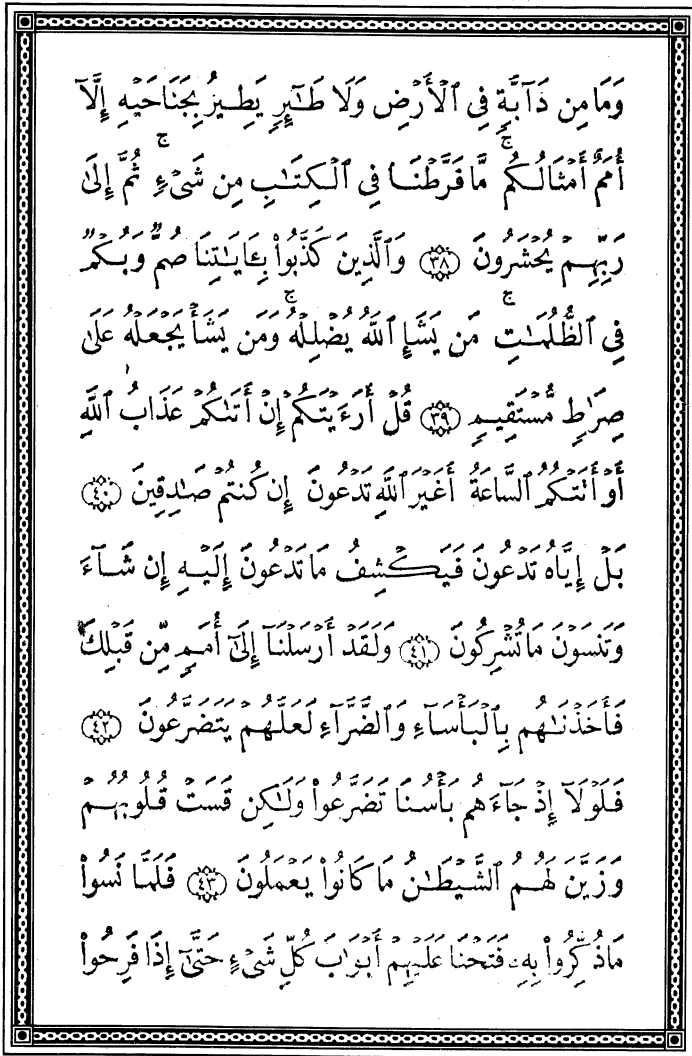 وَمَا مِن دَآبَّةٍ فِي ٱلْأَرْضِ وَلَا طَٰٓئِرٍ يَطِيرُ بِجَنَاحَيْهِ إِلَّآ
أُمَمٌ أَمْثَالُكُمۚ مَّا فَرَّطْنَا فِي ٱلْكِتَٰبِ مِن شَيْءٍۚ ثُمَّ إِلَىٰ
رَبِّهِمْ يُحْشَرُونَ ﴿٣٨﴾ وَٱلَّذِينَ كَذَّبُوا۟ بِـَٔايَٰتِنَا صُمٌّ وَبُكْمٌ
فِي ٱلظُّلُمَٰتِۗ مَن يَشَإِ ٱللَّهُ يُضْلِلْهُۚ وَمَن يَشَأْ يَجْعَلْهُ عَلَىٰ
صِرَٰطٍ مُّسْتَقِيمٍ ﴿٣٩﴾ قُلْ أَرَءَيْتَكُمْ إِنْ أَتَىٰكُمْ عَذَابُ ٱللَّهِ
أَوْ أَتَتْكُمُ ٱلسَّاعَةُ أَغَيْرَ ٱللَّهِ تَدْعُونَ إِن كُنتُمْ صَٰدِقِينَ ﴿٤٠﴾
بَلْ إِيَّاهُ تَدْعُونَ فَيَكْشِفُ مَا تَدْعُونَ إِلَيْهِ إِن شَآءَ
وَتَنسَوْنَ مَا تُشْرِكُونَ ﴿٤١﴾ وَلَقَدْ أَرْسَلْنَآ إِلَىٰٓ أُمَمٍ مِّن قَبْلِكَ
فَأَخَذْنَٰهُم بِٱلْبَأْسَآءِ وَٱلضَّرَّآءِ لَعَلَّهُمْ يَتَضَرَّعُونَ ﴿٤٢﴾
فَلَوْلَآ إِذْ جَآءَهُم بَأْسُنَا تَضَرَّعُوا۟ وَلَٰكِن قَسَتْ قُلُوبُهُمْ
وَزَيَّنَ لَهُمُ ٱلشَّيْطَٰنُ مَا كَانُوا۟ يَعْمَلُونَ ﴿٤٣﴾ فَلَمَّا نَسُوا۟
مَا ذُكِّرُوا۟ بِهِۦ فَتَحْنَا عَلَيْهِمْ أَبْوَٰبَ كُلِّ شَيْءٍ حَتَّىٰٓ إِذَا فَرِحُوا۟